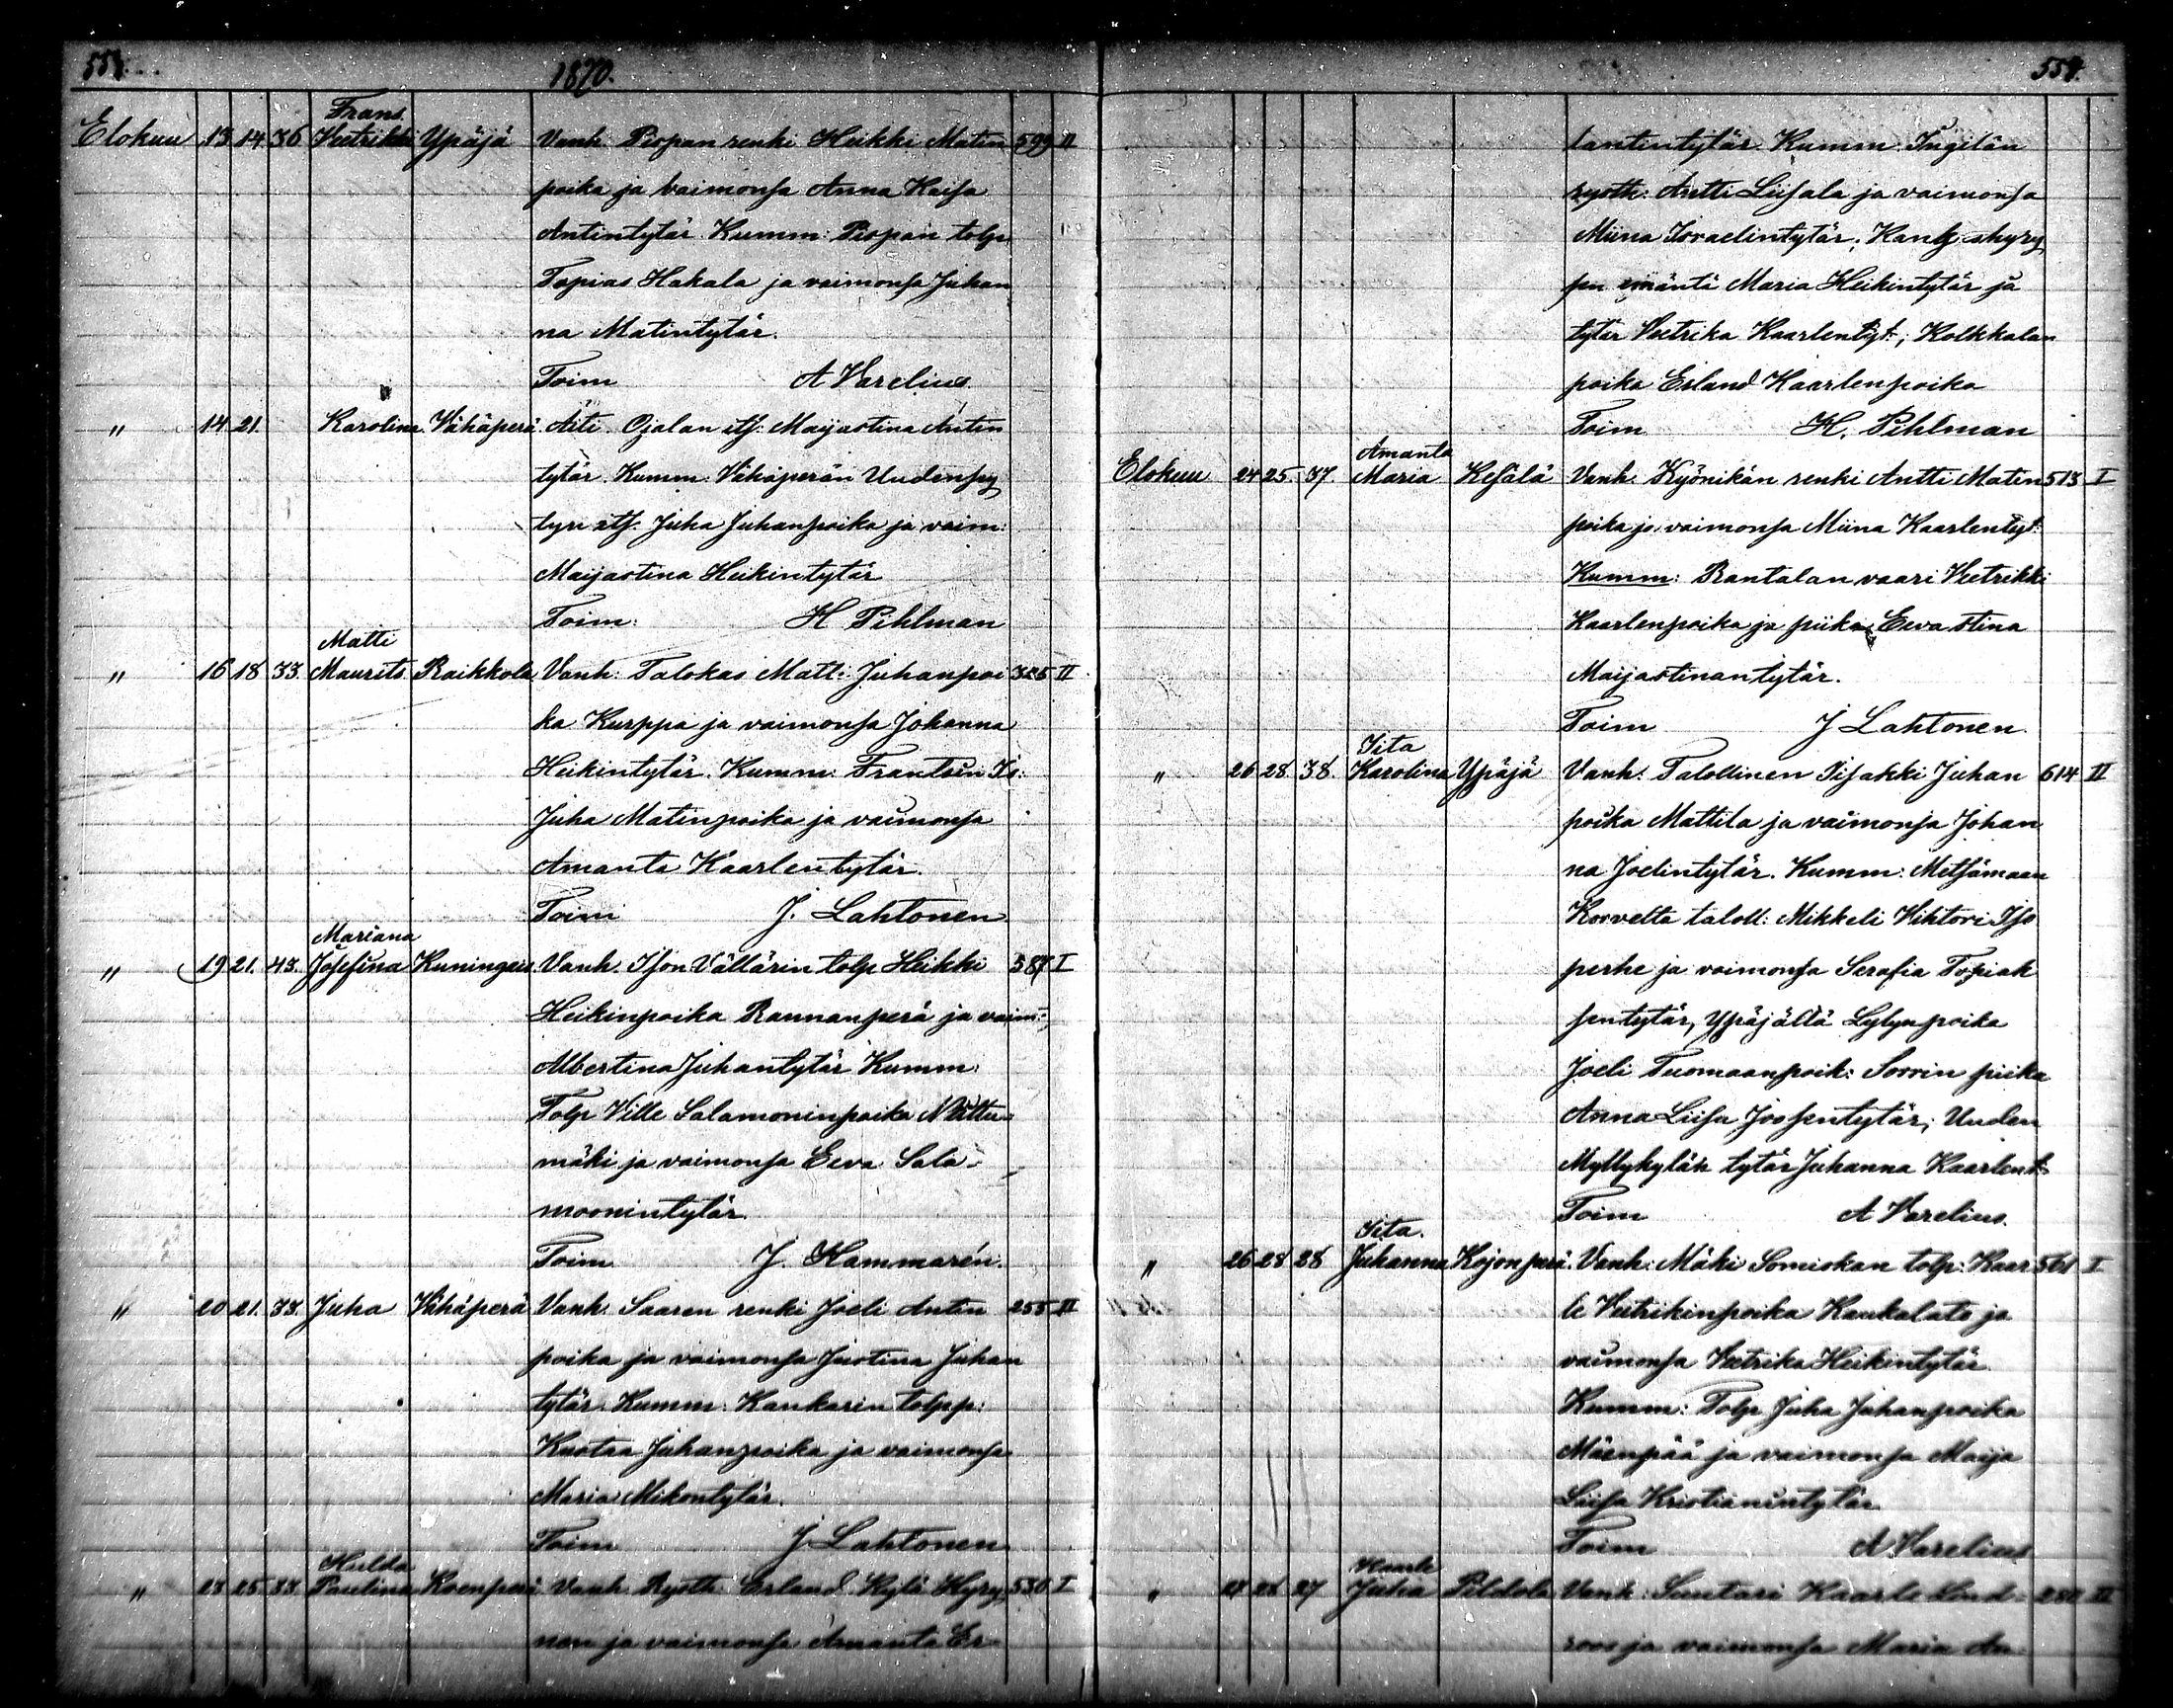 1870.
Frans
Elokuu 13 14 36 Veetrikki Ypäjä Vanh. Pispan renki Heikki Matin 599 II
poika ja vaimonsa Anna Kaisa
Antintytär. Kumm: Pispan tolp.
Topias Hakala ja vaimonsa Juhan
na Matintytär.
Toim A Varelius
" 14 21. Karolina Vähäperä. Äiti. Ojalan its: Maijastina Antin
tytär. Kumm: Vähäperän Uudenpy
its. Juha Juhanpoika ja vaim:
Maijastina Heikintytär
Toim: H Pihlman
Matti
" 16 18 33. Maurits Raikkola Vanh: Talokas Matti Juhanpoi 325 II
ka Kurppa ja vaimonsa Johanna
Heikintytär. Kumm: Frantsin Is:
Juha Matinpoika ja vaimonsa
Amanta Kaarlentytär.
Toim J. Lahtonen
Mariana
" 19 21. 43. Josefina Kuningais Vanh. Ison Vällärin tolp Heikki 387 I
Heikinpoika Rannanperä ja vaim:
Albertina Juhantytär Kumm:
Tolp Ville Salamoninpoika
mäki ja vaimonsa Eeva Sala-
moonintytär
Toim J. Hammarén.
" 20 21. 33. Juha Vähäperä Vanh. Saaren renki Joeli Antin 255 II
poika ja vaimonsa Justina Juhan
tytär. Kumm: Kankarin tolpp:
Kustaa Juhanpoika ja vaimonsa
Maria Mikontytär.
Toim J Lahtonen
Hulda
" 23 25. 33. Paulina Koenperä Vanh Rysth. Erland Kylä Hyry 530 I
nen ja vaimonsa Amanta Er
554.
lantintytär. Kumm:
rysth: Antti Liisala ja vaimonsa
Miina Israelintytär;
emäntä Maria Heikintytär ja
tytär Veetrika Kaarlentyt.; Kolkkalan
poika Erland Kaarlenpoika
Toim H. Pihlman
Amanta
Elokuu 24 25. 37. Maria Kesälä Vanh. Kyönikän renki Antti Matin 513 I
poika ja vaimonsa Miina Kaarlentyt.
Kumm: Rantalan vaari Veetrikki
Kaarlenpoika ja piika Eeva Stina
Maijastinantytär.
Toim J Lahtonen.
Iita
" 26 28. 38. Karolina Ypäjä Vanh: Talollinen Iisakki Juhan 614 II
poika Mattila ja vaimonsa Johan
na Joelintytär. Kumm: Metsämaan
Korvelta taloll: Mikkeli Vihtori Iso
perhe ja vaimonsa Serafia Topiak
sentytär, Ypäjältä Lylyn poika
Joeli Tuomaanpoik: Sorrin piika
Anna Liisa Joosentytär; Uuden
Myllykylän tytär Juhanna Kaarlent.
Toim A Varelius.
Iita.
" 26 28 28 Juhanna Kojonperä. Vanh: Mäki Somiskan tolp: Kaar 561 I
le Veetrikinpoika Kaukalato ja
vaimonsa Veetrika Heikintytär
Kumm: Tolp Juha Juhanpoika
Mäenpää ja vaimonsa Maija
Liisa Kristianintytär
Toim A Varelius
Kaarle
" 28 27 Juha Vanh: Suutari Kaarle Lind-
roos ja vaimonsa Maria An-